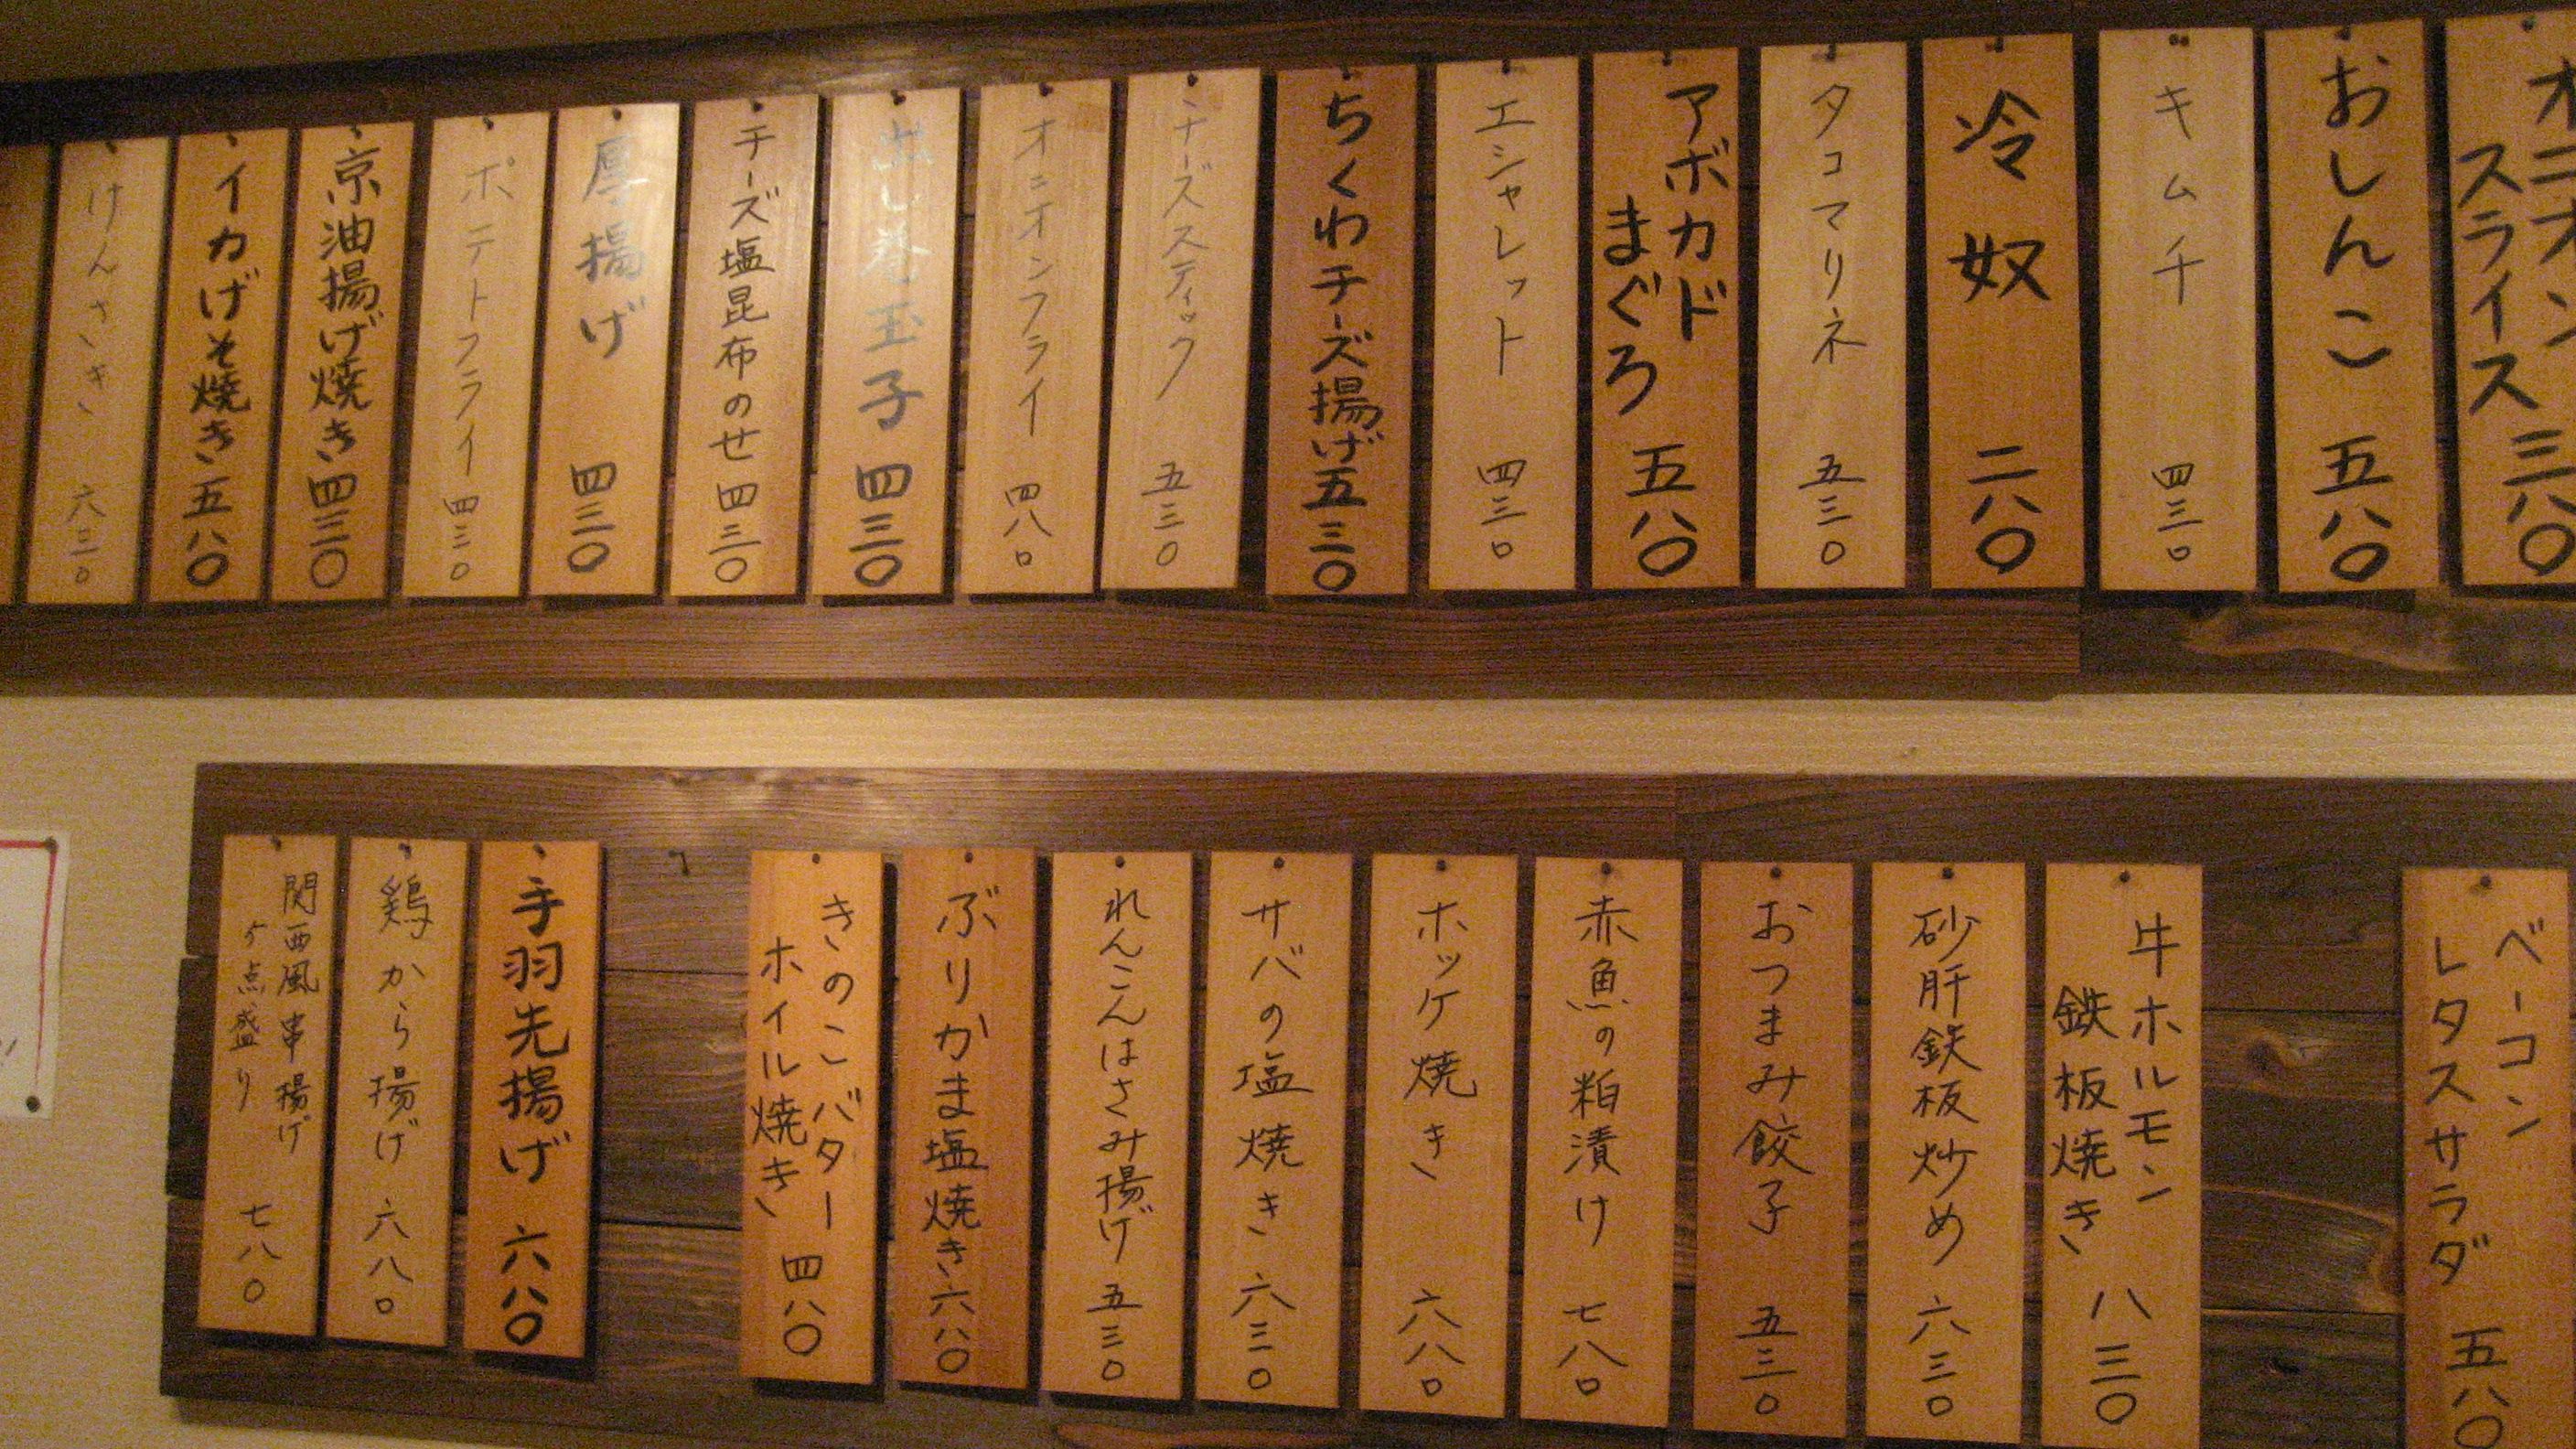 オニオン
スライス 三八〇
おしんこ 五八〇
キムチ 四三〇
冷奴 二八〇
タコマリネ 五三〇
アボカド
まぐろ 五八〇
エシャレット 四三〇
ちくわチーズ揚げ 五三〇
チーズスティック 五三〇
オニオンフライ 四八〇
出し巻玉子 四三〇
チーズ塩昆布のせ 四三〇
厚揚げ 四三〇
ポテトフライ 四三〇
京油揚げ焼き 四三〇
イカげそ焼き 五八〇
けんさき 六三〇
ベーコン
レタスサラダ 五八〇
牛ホルモン
鉄板焼き 八三〇
砂肝鉄板炒め 六三〇
おつまみ餃子 五三〇
赤魚の粕漬け 七八〇
ホッケ焼き 六八〇
サバの塩焼き 六三〇
れんこんはさみ揚げ 五三〇
ぶりかま塩焼き 六八〇
きのこバター
ホイル焼き 四八〇
手羽先揚げ 六八〇
鶏から揚げ 六八〇
関西風串揚げ
5点盛り 七八〇